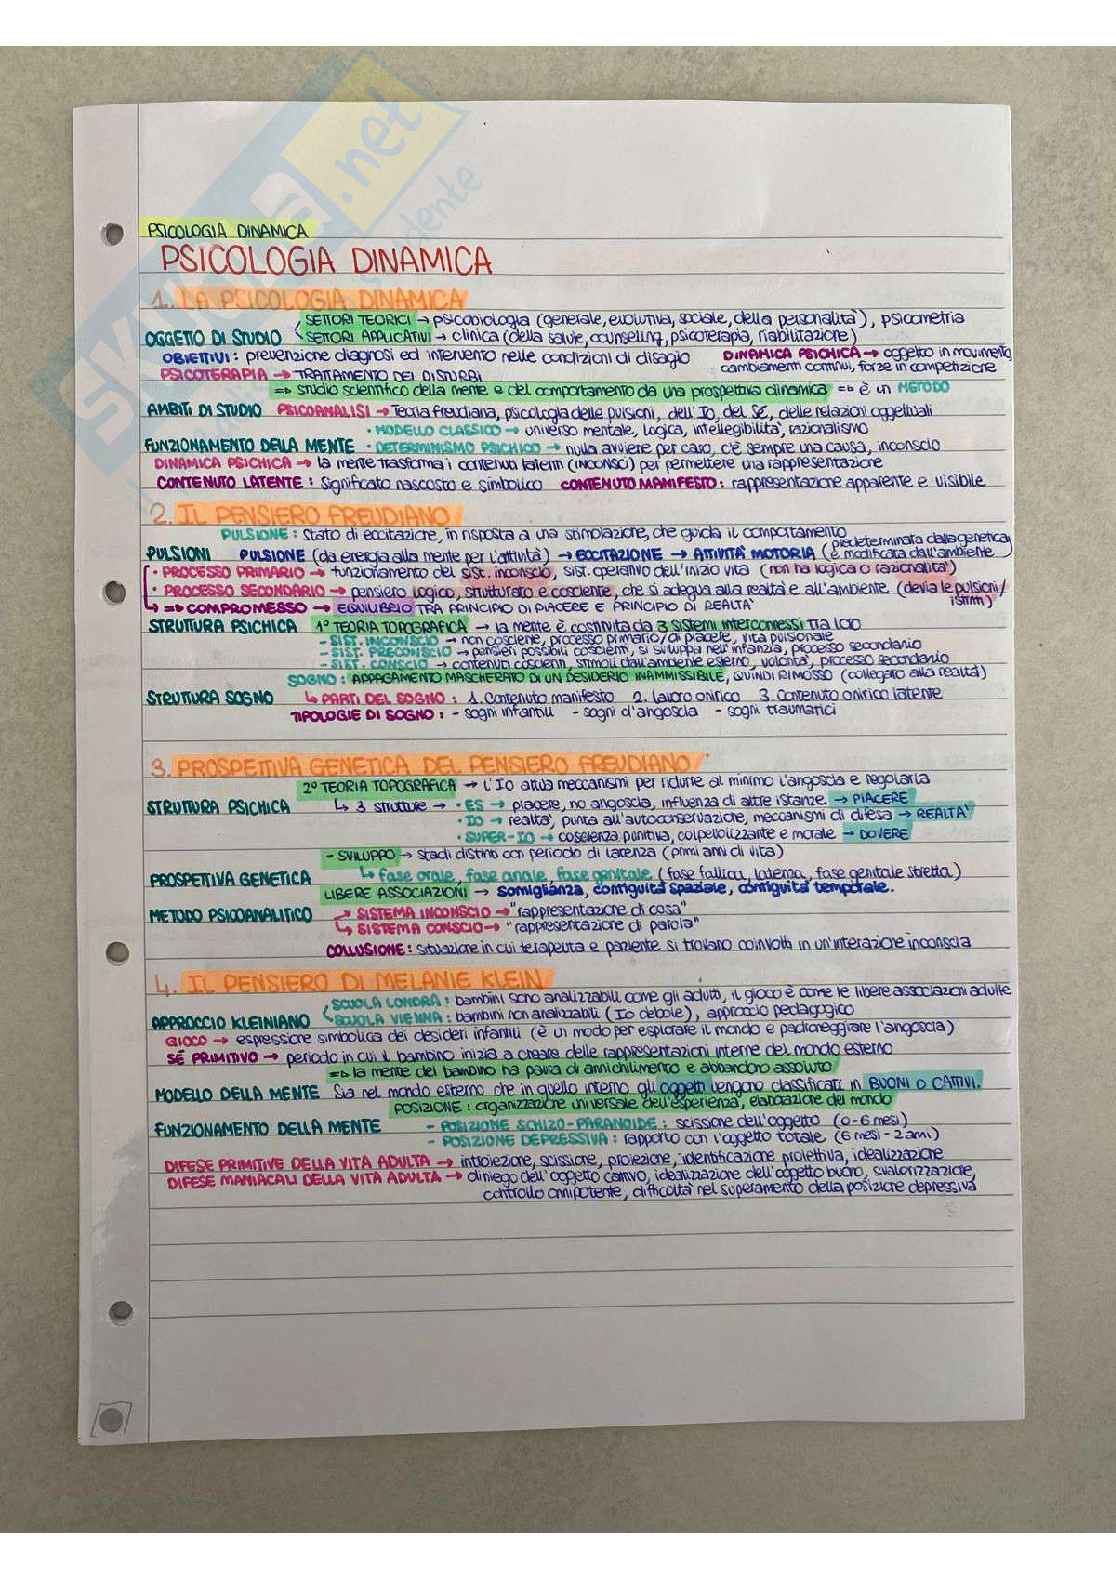 SKUOLA.net
PSICOLOGIA DINAMICA
PSICOLOGIA DINAMICA
1. LA PSICOLOGIA DINAMICA
OGGETTO DI STUDIO SETTORI TEORICI → psicobiologia (generale, evolutiva, sociale, della personalità), psicometria
SETTORI APPLICATIVI → clinica (della salute, counseling, psicoterapia, riabilitazione)
OBIETTIVI: prevenzione diagnosi ed intervento nelle condizioni di disagio DINAMICA PSICHICA → oggetto in movimento,
cambiamenti continui, forze in competizione
PSICOTERAPIA → TRATTAMENTO DEI DISTURBI
=> studio scientifico della mente e del comportamento da una prospettiva dinamica => è un METODO
AMBITI DI STUDIO PSICOANALISI → Teoria freudiana, psicologia delle pulsioni, dell'Io, del SÉ, delle relazioni oggettuali
• MODELLO CLASSICO → universo mentale, logica, intellegibilità, razionalismo
FUNZIONAMENTO DELLA MENTE • DETERMINISMO PSICHICO → nulla avviene per caso, c'è sempre una causa, inconscio
DINAMICA PSICHICA → la mente trasforma i contenuti latenti (INCONSCI) per permettere una rappresentazione
CONTENUTO LATENTE: significato nascosto e simbolico CONTENUTO MANIFESTO: rappresentazione apparente e visibile
2. IL PENSIERO FREUDIANO
PULSIONE: Stato di eccitazione, in risposta a una stimolazione, che guida il comportamento
PULSIONI PULSIONE (da energia alla mente per l'attività) → ECCITAZIONE → ATTIVITÀ MOTORIA (predeterminata dalla genetica, è modificata dall'ambiente
• PROCESSO PRIMARIO → funzionamento del sist. inconscio, sist. operativo dell'inizio vita (non ha logica o razionalità)
• PROCESSO SECONDARIO → pensiero logico, strutturato e cosciente, che si adegua alla realtà e all'ambiente. (devia le pulsioni/istinti)
↳ => COMPROMESSO → EQUILIBRIO TRA PRINCIPIO DI PIACERE E PRINCIPIO DI REALTÀ
STRUTTURA PSICHICA 1° TEORIA TOPOGRAFICA → la mente è costituita da 3 sistemi interconnessi tra loro
- SIST. INCONSCIO → non cosciente, processo primario/di piacere, vita pulsionale
- SIST. PRECONSCIO → pensieri possibili coscienti, si sviluppa nell'infanzia, processo secondario
- SIST. CONSCIO → contenuti coscienti, stimoli dall'ambiente esterno, volontà, processo secondario
SOGNO: APPAGAMENTO MASCHERATO DI UN DESIDERIO INAMMISSIBILE, QUINDI RIMOSSO (collegato alla realtà)
STRUTTURA SOGNO ↳ PARTI DEL SOGNO: 1. Contenuto manifesto 2. lavoro onirico 3. Contenuto onirico latente
TIPOLOGIE DI SOGNO: - sogni infantili - sogni d'angoscia - sogni traumatici
3. PROSPETTIVA GENETICA DEL PENSIERO FREUDIANO
2° TEORIA TOPOGRAFICA → L'Io attua meccanismi per ridurre al minimo l'angoscia e regolarla
STRUTTURA PSICHICA ↳ 3 strutture → • ES → piacere, no angoscia, influenza di altre istanze → PIACERE
• IO → realtà, punta all'autoconservazione, meccanismi di difesa → REALTÀ
• SUPER-IO → coscienza punitiva, colpevolizzante e morale → DOVERE
- SVILUPPO → Stadi distinti con periodo di latenza (primi anni di vita)
PROSPETTIVA GENETICA ↳ fase orale, fase anale, fase genitale (fase fallica, latenza, fase genitale stretta)
LIBERE ASSOCIAZIONI → Somiglianza, contiguità spaziale, contiguità temporale.
METODO PSICOANALITICO → SISTEMA INCONSCIO → "rappresentazione di cosa"
↳ SISTEMA CONSCIO → "rappresentazione di parola"
COLLUSIONE: Situazione in cui terapeuta e paziente si trovano coinvolti in un'interazione inconscia
4. IL PENSIERO DI MELANIE KLEIN
SCUOLA LONDRA: bambini sono analizzabili come gli adulti, il gioco è come le libere associazioni adulte
APPROCCIO KLEINIANO SCUOLA VIENNA: bambini non analizzabili (Io debole), approccio pedagogico
GIOCO → espressione simbolica dei desideri infantili (è un modo per esplorare il mondo e padroneggiare l'angoscia)
SÉ PRIMITIVO → periodo in cui il bambino inizia a creare delle rappresentazioni interne del mondo esterno
=> la mente del bambino ha paura di annichilimento e abbandono assoluto
MODELLO DELLA MENTE Sia nel mondo esterno che in quello interno gli oggetti vengono classificati in BUONI O CATTIVI.
POSIZIONE: organizzazione universale dell'esperienza, elaborazione del mondo
FUNZIONAMENTO DELLA MENTE - POSIZIONE SCHIZO-PARANOIDE: scissione dell'oggetto (0-6 mesi)
- POSIZIONE DEPRESSIVA: rapporto con l'oggetto totale (6 mesi - 2 anni)
DIFESE PRIMITIVE DELLA VITA ADULTA → introiezione, scissione, proiezione, identificazione proiettiva, idealizzazione
DIFESE MANIACALI DELLA VITA ADULTA → diniego dell'oggetto cattivo, idealizzazione dell'oggetto buono, svalorizzazione,
controllo onnipotente, difficoltà nel superamento della posizione depressiva